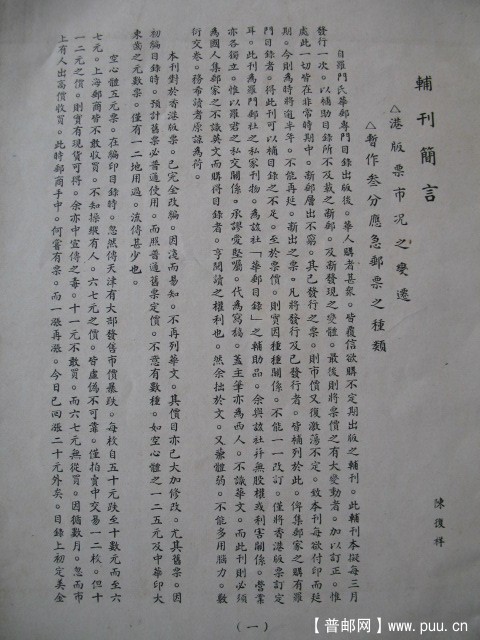 輔刊簡言
△港版票市況之變遷
△暫作叁分應急郵票之種類
陳復祥
自羅門氏華郵專門目錄出版後。華人購者甚衆。皆覆信欲購不定期出版之輔刊。此輔刊本擬每三月
發行一次。以補助目錄所不及載之新郵。及新發現之變體。最後則將票價之有大變動者。加以訂正。惟
處此一切皆在非常時期中。新郵層出不窮。其已發行之票。則市價又復激蕩不定。致本刊每欲付印而延
期。今則爲時將逾半年。不能再延。新出之票。凡將發行及已發行者。皆補列於此。俾集郵家之購有羅
門目錄者。得此刊可以補目錄之不足。至於票價。則實因種種關係。不能一一改訂。僅將香港版票訂定
耳。此刊爲羅門郵社之私家刊物。爲該社「華郵目錄」之輔助品。余與該社幷無股權或利害關係。營業
亦各獨立。惟以羅君之私交關係。承謬愛堅囑。代爲寫稿。蓋主筆亦爲西人。不識華文。而此刊則必須
爲國人集郵家之不識英文而購得目錄者。享閱讀之權利也。然余拙於文。又兼體弱。不能多用腦力。敷
衍交卷。務希讀者原諒爲荷。
本刊對於香港版票。已完全改編。因淺而易知。不再列華文。其價目亦已大加修改。尤其舊票。因
初編目錄時。預計舊票必普通使用。而照普通舊票定價。不意有數種。如空心體之一二五元及中華印大
東齒之元數票。僅有一二地用過。流傳甚少也。
空心體五元票。在編印目錄時。忽然傳天津有大部發售市價暴跌。每枚自五十元跌至十數元而至六
七元。上海郵商皆不敢收買。不知操縱有人。六七元之價。皆虛僞不可靠。僅拍賣中交易一二枚。但十
一二元之價。則實有現貨可得。余亦中宣傳之毒。十一元不敢買。而六七元無從買。因循數月。忽而市
上有人出高價收買。此時郵商手中。何嘗有票。而一漲再漲。今日已回漲二十元外矣。目錄上初定美金
(一)
【普邮网】www.puu.cn